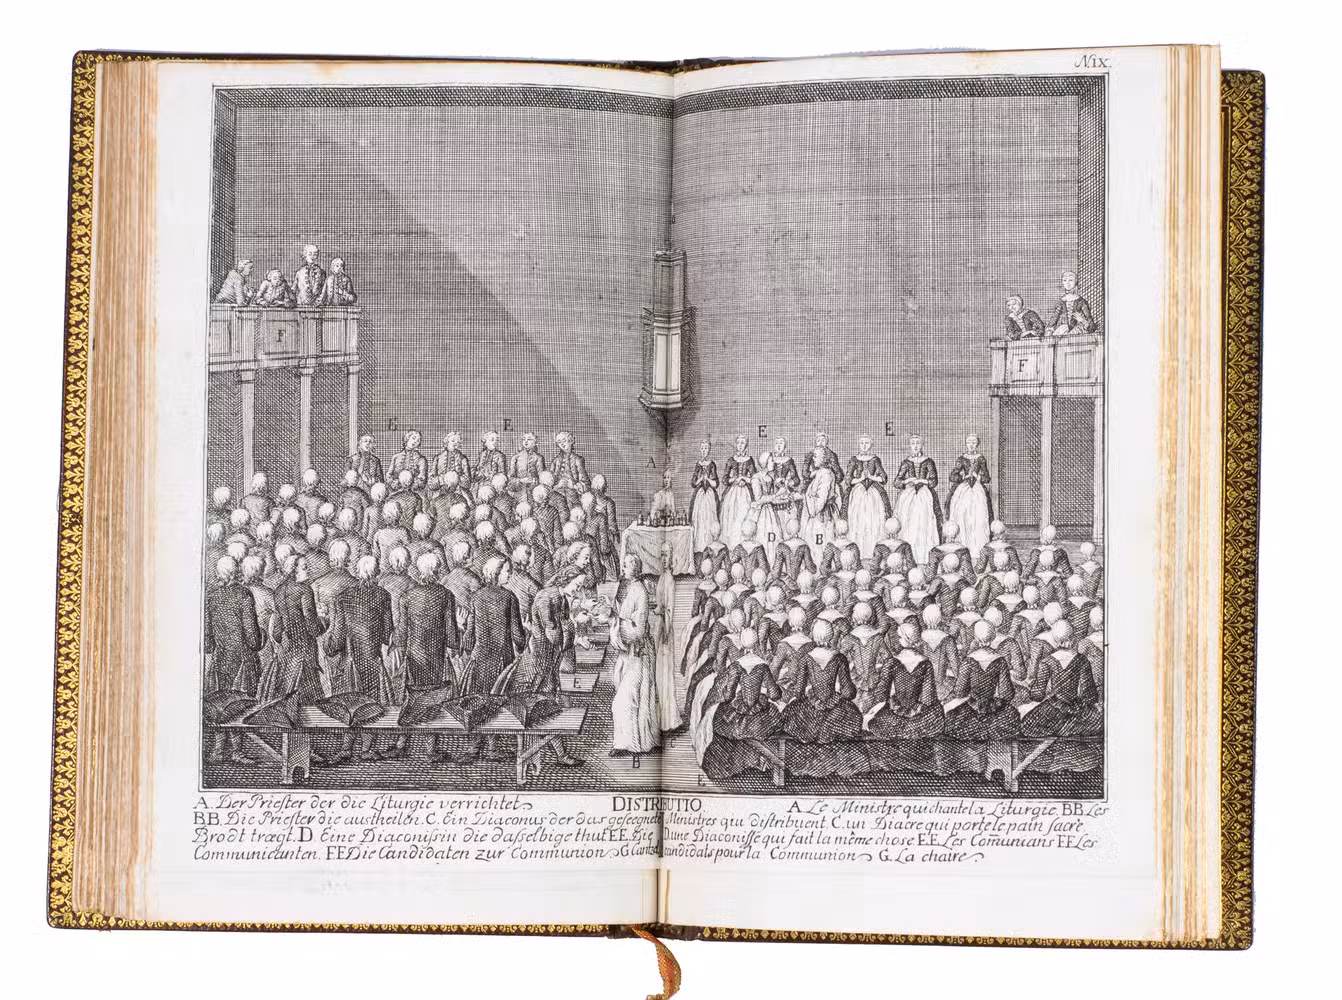 Nix.
F
F
E
E
E
E
A
D
B
E
B
E
DISTRIBUTIO
A. Der Priester der die Liturgie verrichtet
BB. Die Priester die austheilen. C. Ein Diaconus der das gesegnete
Brodt trægt. D. Eine Diaconisin die dasselbige thut EE. Die
Communicanten. FF Die Candidaten zur Communion G. Cantzel
A. Le Ministre qui chante la Liturgie. BB. Les
Ministres qui distribuent. C. un Diacre qui porte le pain sacré
D. une Diaconisse qui fait la même chose. E.E. Les Comunians FF. Les
candidats pour la Communion G. La chaire